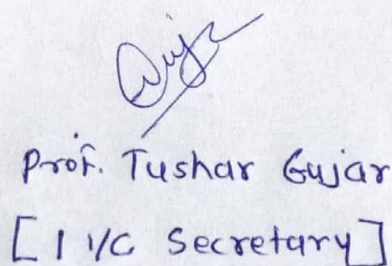 Prof. Tushar Gujar
[I I/C Secretary]